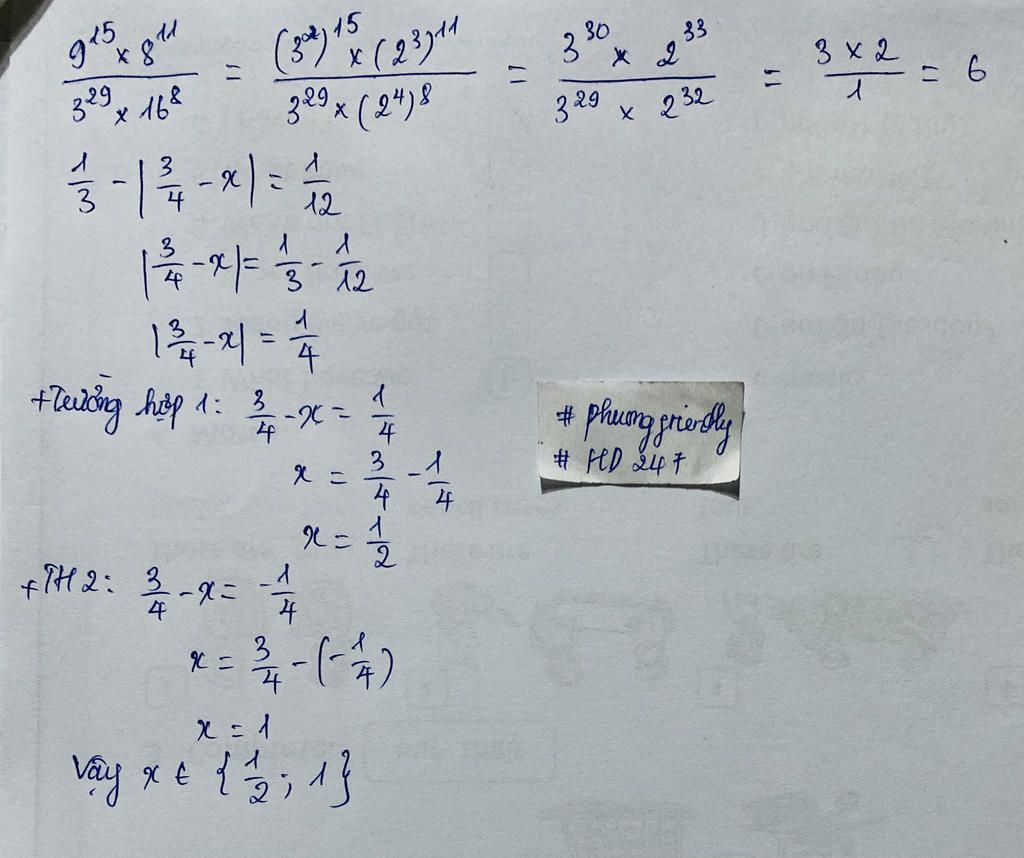 9^15 × 8^11 / 3^29 × 16^8 = (3^2)^15 × (2^3)^11 / 3^29 × (2^4)^8 = 3^30 × 2^33 / 3^29 × 2^32 = 3 × 2 / 1 = 6
1/3 - |3/4 - x| = 1/12
|3/4 - x| = 1/3 - 1/12
|3/4 - x| = 1/4
+ Trường hợp 1: 3/4 - x = 1/4
x = 3/4 - 1/4
x = 1/2
+ TH2: 3/4 - x = -1/4
x = 3/4 - (-1/4)
x = 1
Vậy x ∈ {1/2; 1}
# phuongfriendly
# HD 247